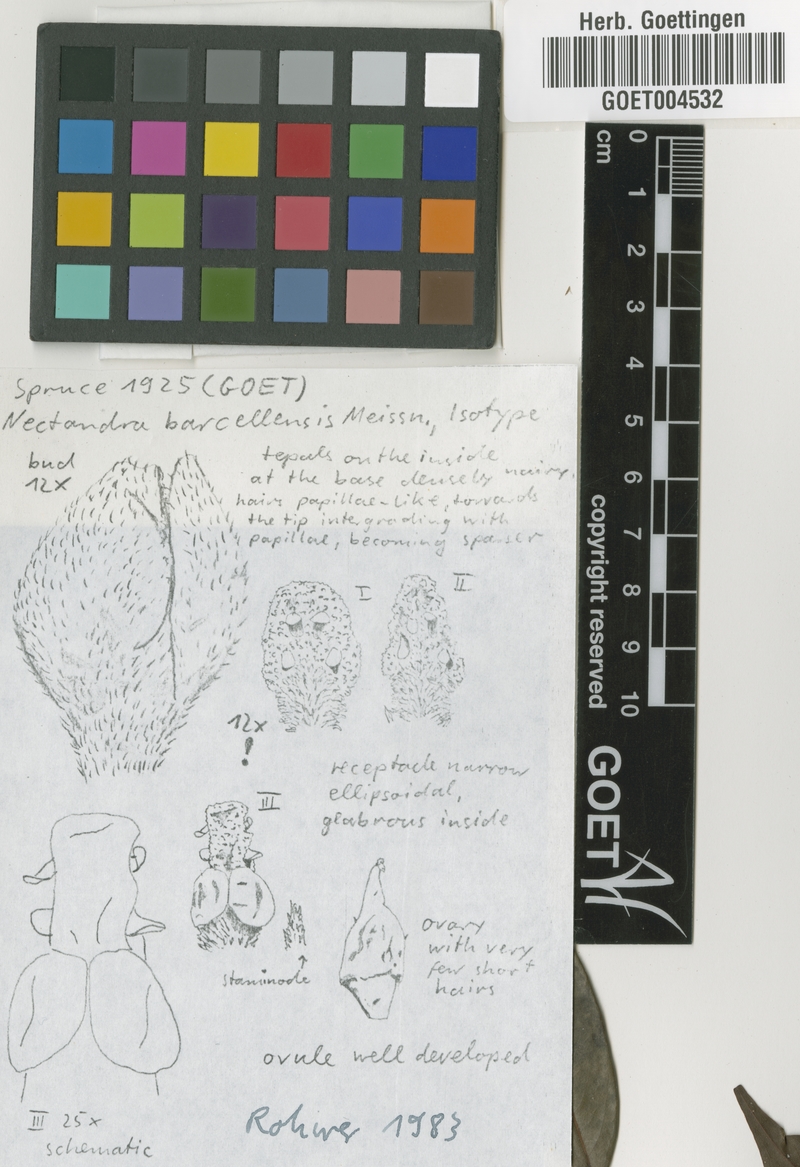 Herb. Goettingen
GOET004532
cm
0
1
2
3
4
5
6
7
8
9
10
copyright reserved
GOET
Spruce 1925 (GOET)
Nectandra barcellensis Meissn., Isotype
bud
12x
tepals on the inside
at the base densely hairy,
hairs papillae-like, towards
the tip intergrading with
papillae, becoming sparser
I
II
12x
!
receptacle narrow
ellipsoidal,
glabrous inside
III
staminode
ovary
with very
few short
hairs
ovule well developed
III 25x
schematic
Rohwer 1983